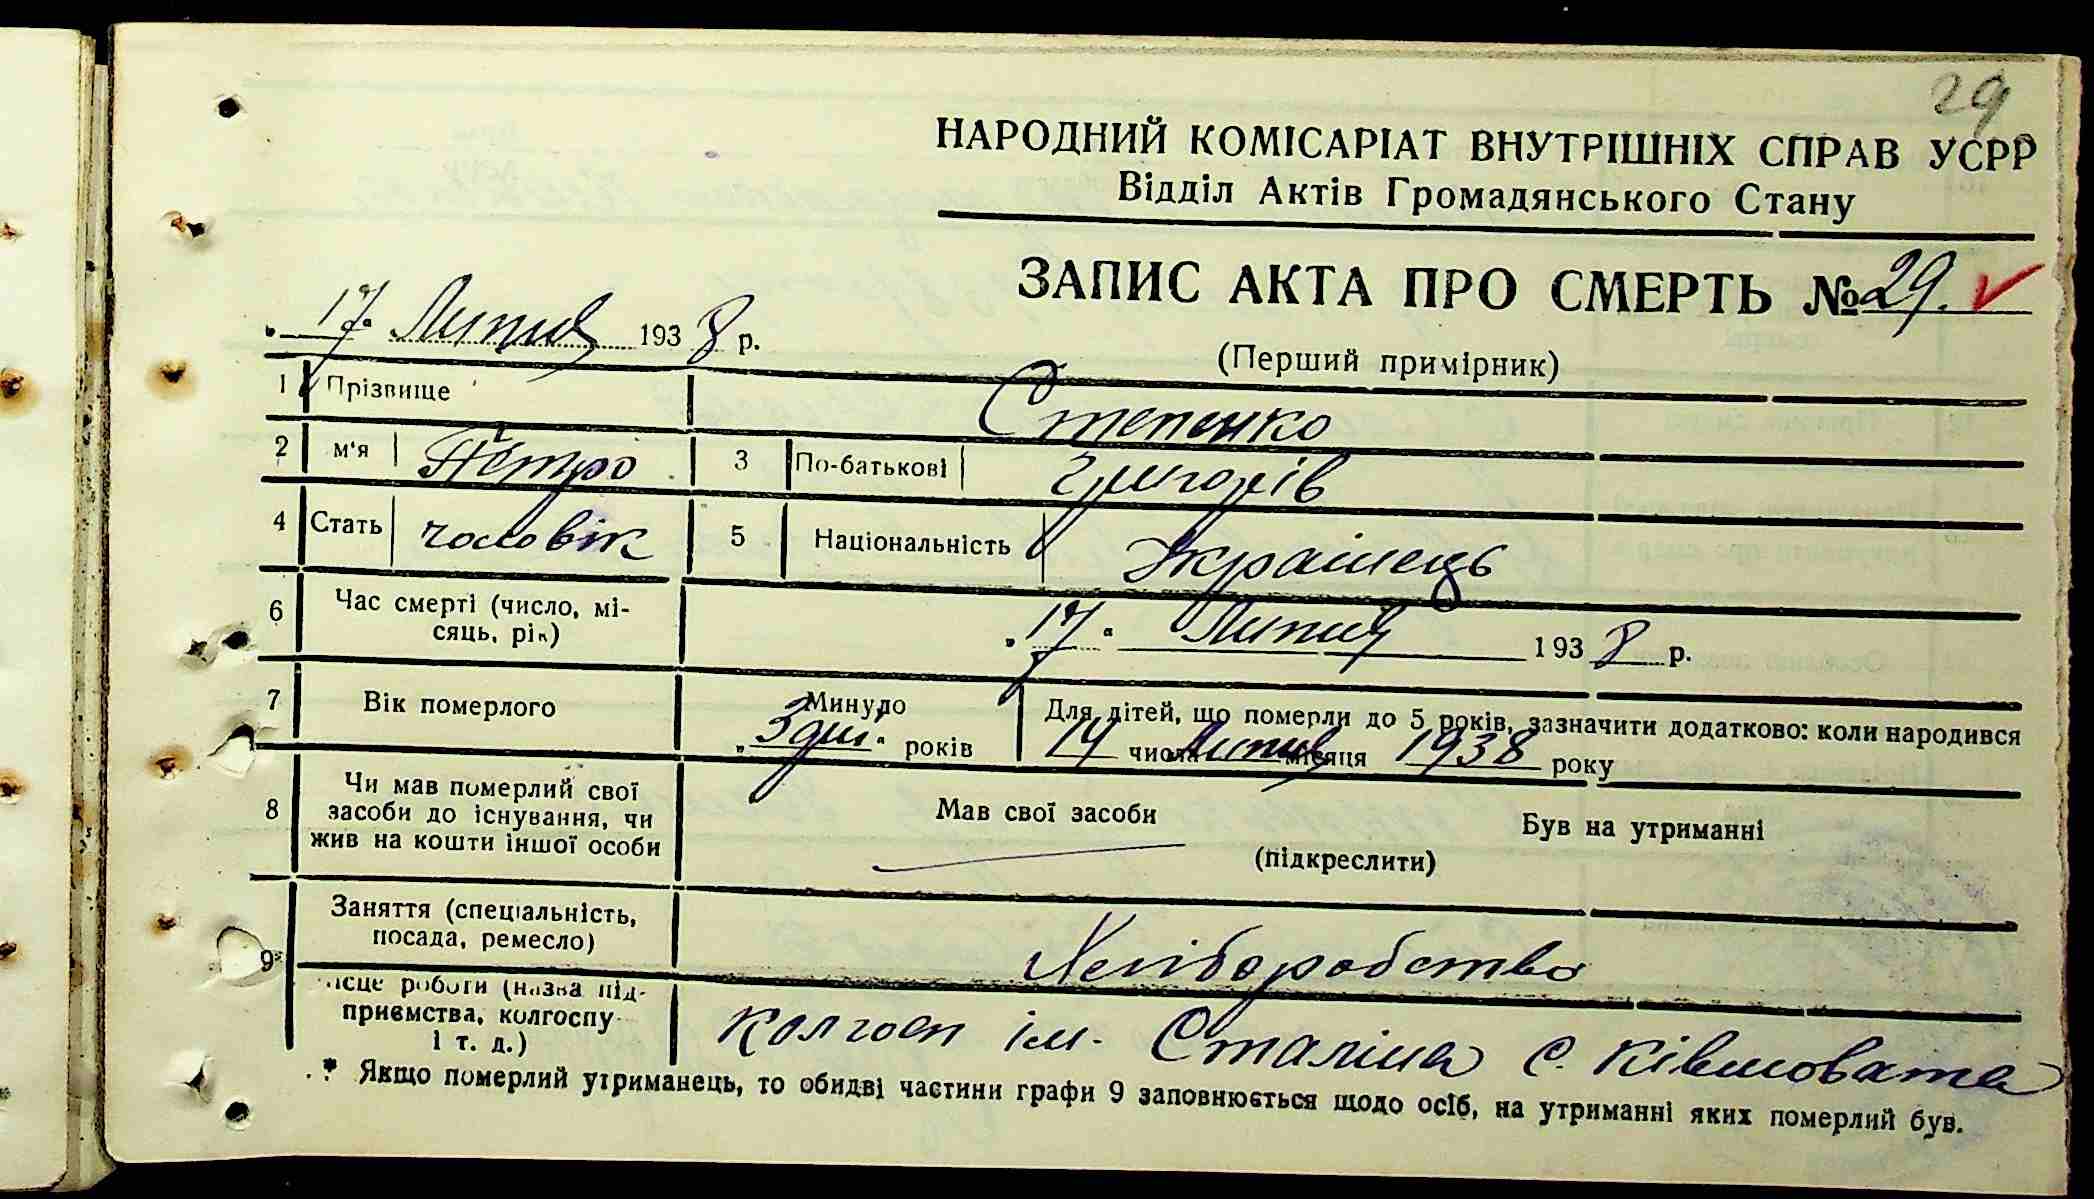 29
НАРОДНИЙ КОМІСАРІАТ ВНУТРІШНІХ СПРАВ УСРР
Відділ Актів Громадянського Стану
ЗАПИС АКТА ПРО СМЕРТЬ № 29.
„ 17 " Липня 1938 р.
(Перший примірник)
1 Прізвище Степенко
2 м'я Петро 3 По-батькові Григорів
4 Стать чоловік 5 Національність Українець
6 Час смерті (число, мі-
сяць, рік) „ 17 " Липня 1938 р.
7 Вік померлого Минуло „ 3 дні " років Для дітей, що померли до 5 років, зазначити додатково: коли народився
14 числа Липня місяця 1938 року
8 Чи мав померлий свої
засоби до існування, чи
жив на кошти іншої особи
Мав свої засоби Був на утриманні
(підкреслити)
9* Заняття (спеціальність,
посада, ремесло) Хліборобство
ісце роботи (назва під-
приємства, колгоспу
і т. д.) колгосп ім. Сталіна с.
* Якщо померлий утриманець, то обидві частини графи 9 заповнюється щодо осіб, на утриманні яких померлий був.